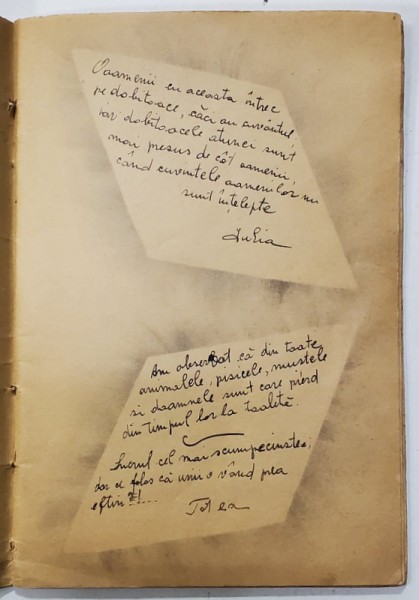 Oamenii cu aceasta întrec
pe dobitoace, căci au cuvântul,
iar dobitoacele atunci sunt
mai presus de cât oamenii,
când cuvintele oamenilor nu
sunt înțelepte
Iulia
Am observat că din toate
animalele, pisicele, muștele
si doamnele sunt care pierd
din timpul lor la toaletă.
Lucrul cel mai scump e cinstea;
dar ce folos că unii o vând prea
eftin
Tot ea